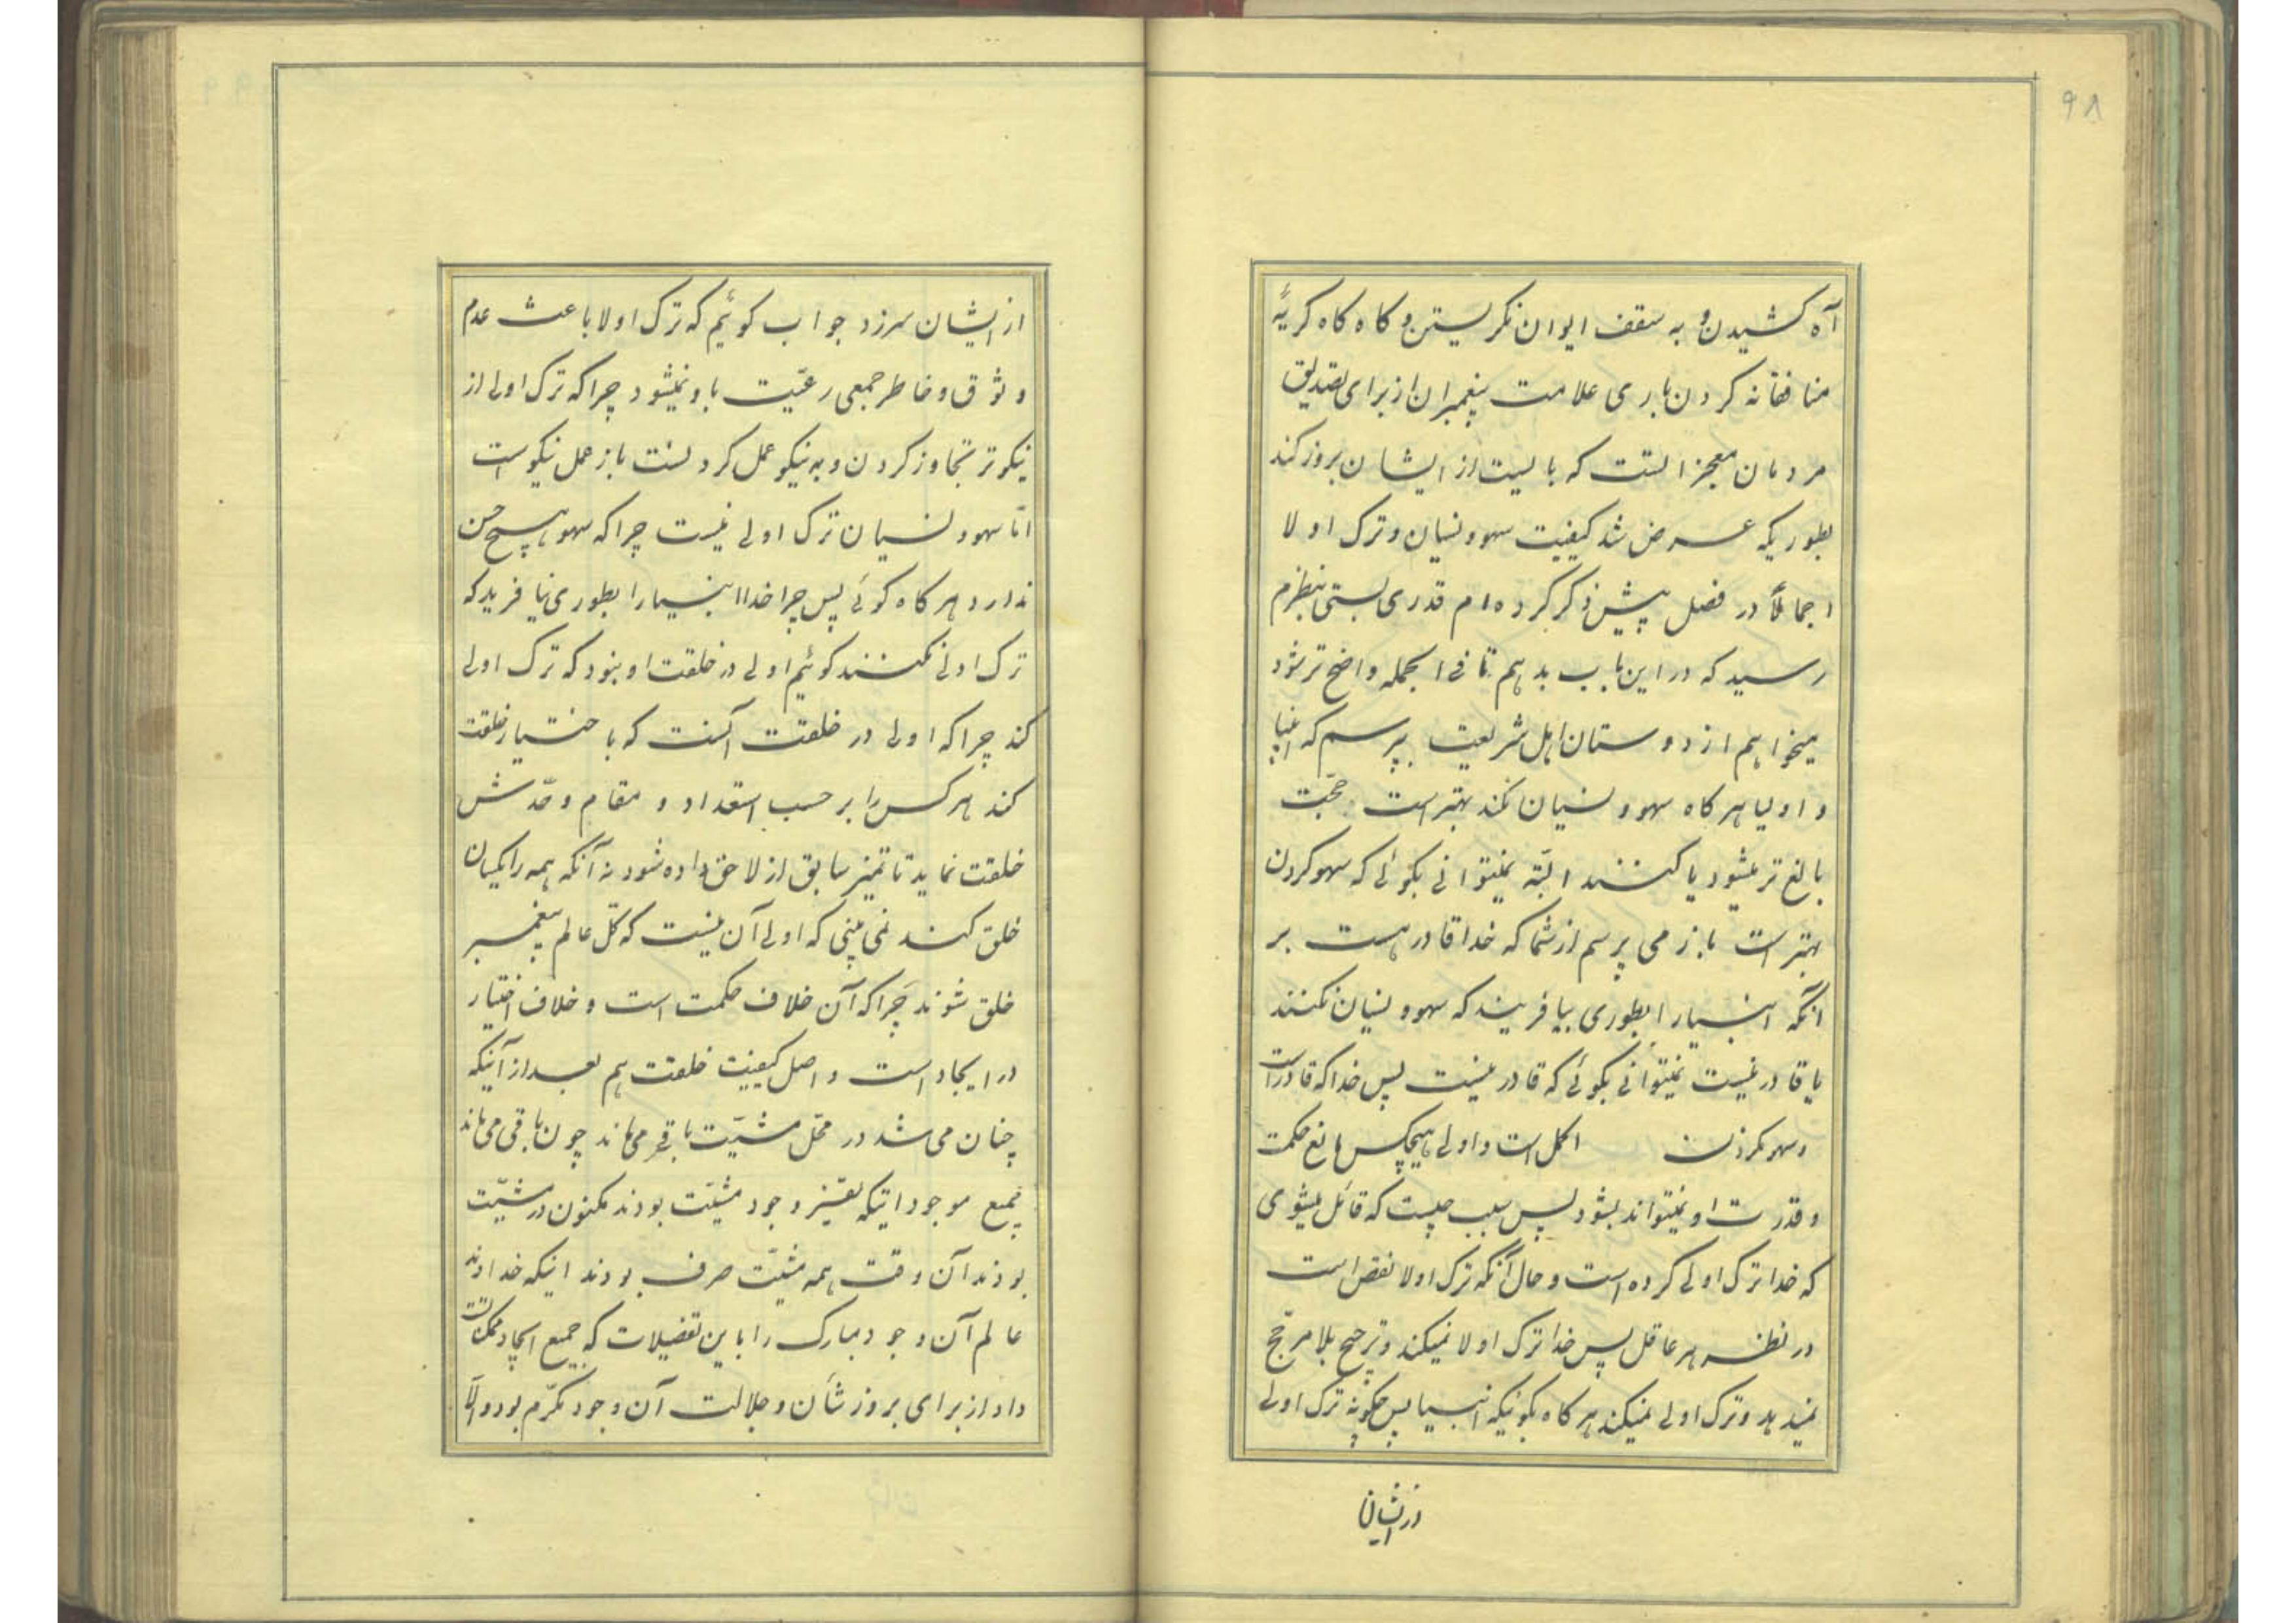 ۹۸
آه کشیدن و به سقف ایوان نکریستن و کاه کاه کریهٔ
منافقانه کردن باری علامت پیغمبران از برای تصدیق
مردمان معجز است که بایست از ایشان بروز کند
بطوریکه عرض شد کیفیت سهو و نسیان و ترک اولا
اجمالاً در فصل پیش ذکر کرده ام قدری بستی بنظرم
رسید که در این باب بدهم تا فی الجمله واضح تر شود
میخواهم از دوستان اهل شریعت بپرسم که انبیا
و اولیا هر کاه سهو و نسیان نکند بهتر است حجّت
بالغ تر میشود یا کنند البّته نمیتوانی بکوئی که سهو کردن
بهتر است باز می پرسم از شما که خدا قادر هست بر
آنکه انبیا را بطوری بیافریند که سهو و نسیان نکنند
یا قادر نیست نمیتوانی بکوئی که قادر نیست پس خدا که قادر است
و سهو نکردن اکمل است و اولی هیچکس مانع حکمت
و قدرت او نمیتواند بشود پس سبب چیست که قائل میشوی
که خدا ترک اولی کرده است و حال آنکه ترک اولا نقص است
در نظر هر عاقل پس خدا ترک اولا نمیکند و ترجیح بلا مرجّح
نمیدهد و ترک اولی نمیکند هر کاه بکوئیکه انبیا پس چکونه ترک اولی
از ایشان
از ایشان سرزد جواب کوئیم که ترک اولا باعث عدم
وثوق و خاطر جمعی رعیّت باو نمیشود چرا که ترک اولی از
نیکوتر تجاوز کردن و به نیکو عمل کردنست باز عمل نیکو است
امّا سهو و نسیان ترک اولی نیست چرا که سهو هیچ حسن
ندارد هر کاه کوئی پس چرا خدا انبیا را بطوری نیافرید که
ترک اولی نکنند کوئیم اولی در خلقت او نبود که ترک اولی
کند چرا که اولی در خلقت آنست که با ختیار خلقت
کند هر کس را بر حسب استعداد و مقام و حدّش
خلقت نماید تا تمیز سابق از لاحق داده شود نه آنکه همه را یکسان
خلق کند نمی بینی که اولی آن نیست که کلّ عالم پیغمبر
خلق شوند چرا که آن خلاف حکمت است و خلاف اختیار
در ایجاد است و اصل کیفیت خلقت هم بعد از آنیکه
چنان می شد در محّل مشیّت باقی می ماند چون باقی می ماند
جمیع موجوداتیکه بغیر وجود مشیّت بودند مکنون در مشیّت
بودند آن وقت همه مشیّت صرف بودند اینکه خداوند
عالم آن وجود مبارک را باین تفضیلات که جمیع ایجاد ممکنات
داد از برای بروز شأن و جلالت آن وجود مکرّم بود و الّا